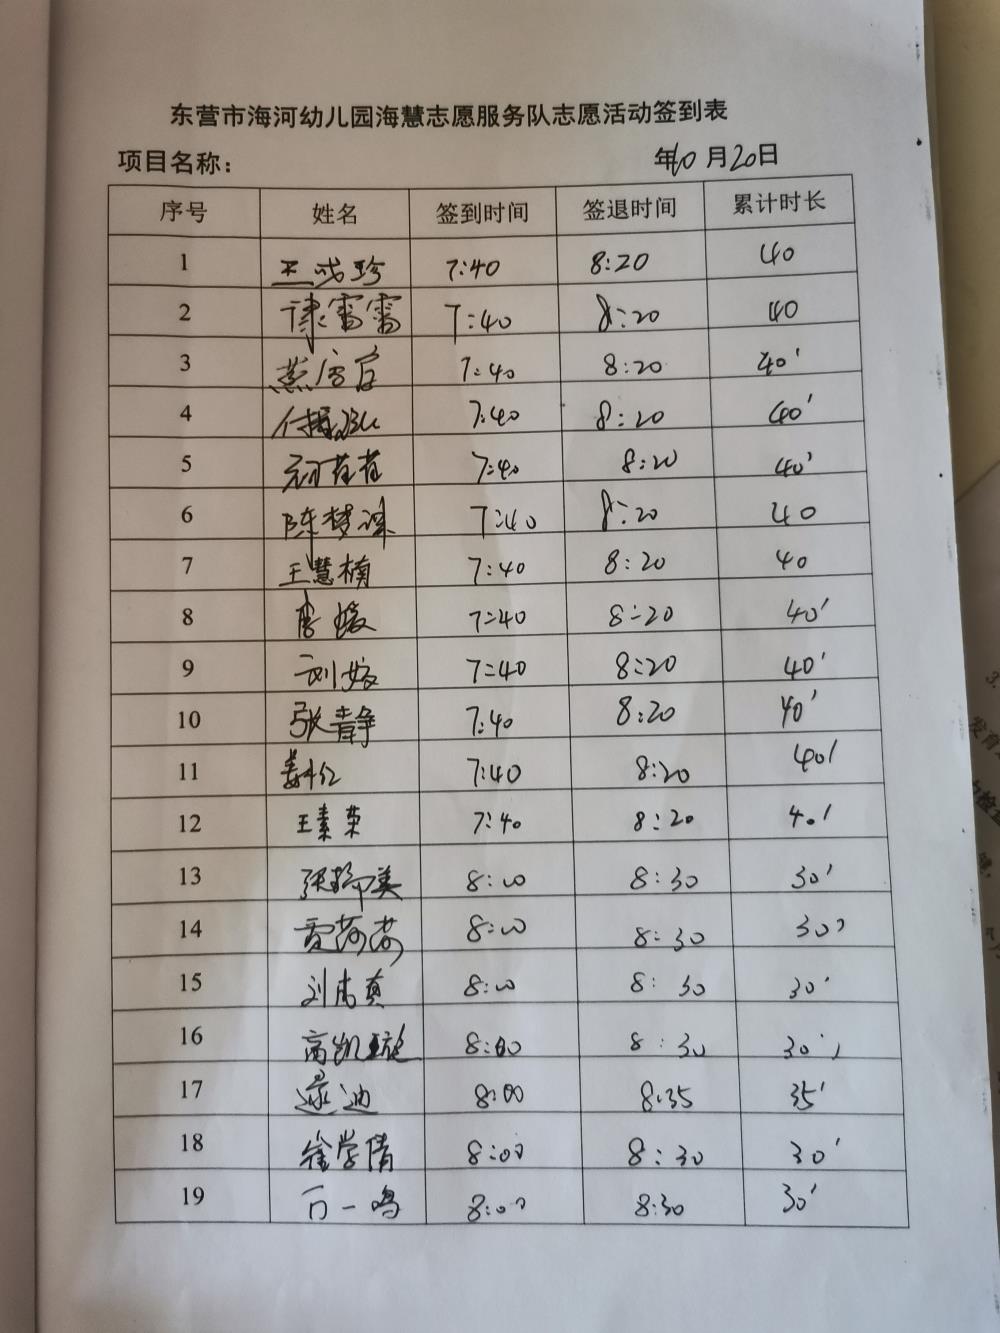 东营市海河幼儿园海慧志愿服务队志愿活动签到表
项目名称: 年10月20日
序号 姓名 签到时间 签退时间 累计时长
1 7:40 8:20 40
2 雷雷 7:40 8:20 40
3 7:40 8:20 40'
4 7:40 8:20 40'
5 7:40 8:20 40'
6 陈梦 7:40 8:20 40
7 王慧楠 7:40 8:20 40
8 李媛 7:40 8:20 40'
9 刘 7:40 8:20 40'
10 张静 7:40 8:20 40'
11 姜 7:40 8:20 40'
12 王素荣 7:40 8:20 40'
13 张 美 8:00 8:30 30'
14 贾茜茜 8:00 8:30 30'
15 刘 真 8:00 8:30 30'
16 高凯璇 8:00 8:30 30'
17 逯迪 8:00 8:35 35'
18 徐学倩 8:00 8:30 30'
19 万一鸣 8:00 8:30 30'
3.
发育